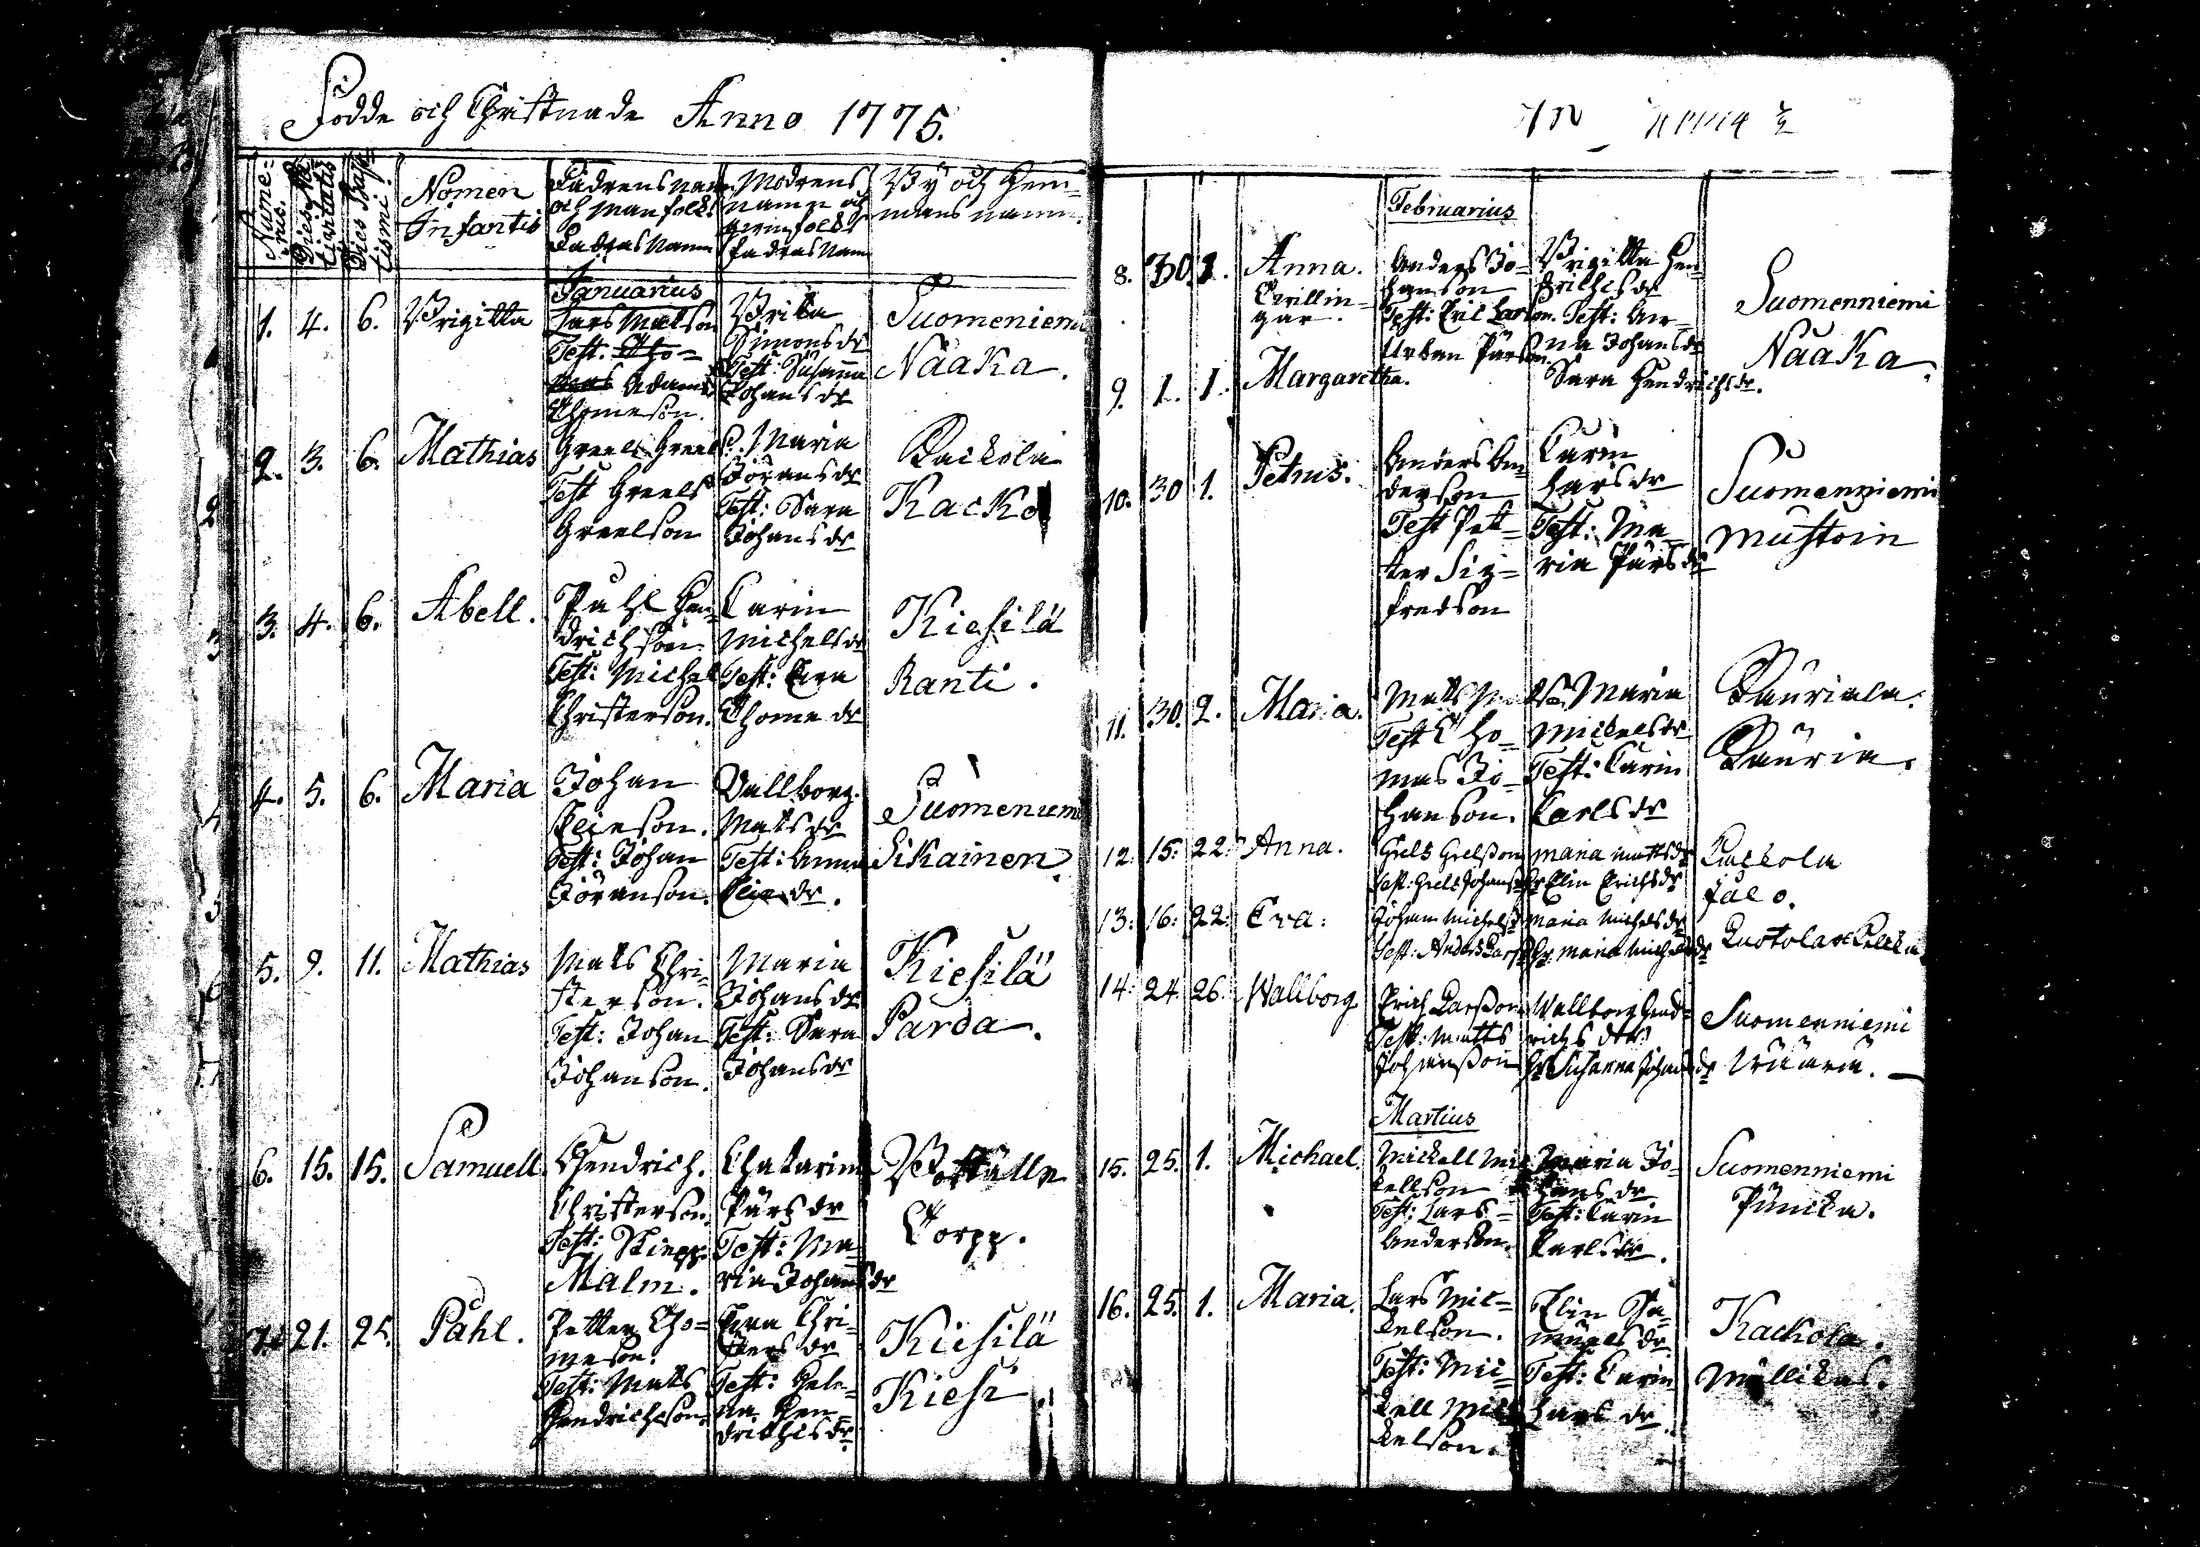 Födde och Christnade Anno 1775.
Nume-
rus.
Dies Na-
tivitatis
Dies Bap-
tismi.
Nomen
Infantis
Fädrens namn
och Manfolks
Fadras Namn
Modrens
namn och
qvinfolks
fadras Namn
By och Hem-
mans namn.
Januarius
1. 4. 6. Brigitta
Lars Matson
Test.
Adam
Thomeson.
Brita
Simons dr
Test: Susanna
Johans dr
Suomeniemi
Nääka.
2. 3. 6. Mathias
Greels Greels
Test Greels
Greelson
Maria
Jörans dr
Test: Sara
Johans dr
Kackola
Kacko
3. 4. 6. Abell.
Pahl Hen-
drichson.
Test: Michel
Christerson.
Carin
Michels dr
Test: Eva
Thome dr
Kiesilä
Ranti.
4. 5. 6. Maria
Johan
Elieson.
Test: Johan
Jöranson.
Vallborg
Mats dr
Test: Anna
Elie dr.
Suomeniemi
Sikainen.
5. 9. 11. Mathias
Mats Chri-
sterson.
Test: Johan
Johanson.
Maria
Johans dr
Test: Sara
Johans dr
Kiesilä
Parda.
6. 15. 15. Samuell
Hendrich
Christerson.
Test: Skiepp.
Malm.
Chatarina
Pärs dr
Test: Ma-
ria Johans dr
Torpp.
7. 21. 25. Påhl.
Petter Tho-
meson.
Test: Mats
Hendrichson.
Eva Chri-
sters dr
Test: Hele-
na Hen-
drichs dr
Kiesilä
Kiesi
Februarius
8. 30. 1. Anna.
Tvillin-
gar.
Anders Jo-
hanson
Test: Eric Larson.
Urban Pärson
Brigitta Hen-
drichs dr
Test: An-
na Johans dr
Sara Hendrichs dr.
Suomenniemi
Nääka.
9. 1. 1. Margaretha.
10. 30 1. Petrus.
Anders An-
derson
Test Pet-
ter Sig-
fredson
Carin
Lars dr
Test: Ma-
ria Pärs dr
Suomenniemi
Mustoin
11. 30. 2. Maria.
Mats
Test Tho-
mas Jo-
hanson.
Maria
Mickels dr
Test: Carin
Carls dr
Kauriala.
Kauria.
12. 15. 22. Anna.
Grels Grelsson
Test: Grels Johans
Maria Matts dr
Elin Erichs dr
Kackola
Jalo.
13. 16. 22. Eva:
Johan Michels
Test: Anders Lars
Maria Michels dr
Maria Michels dr
14. 24. 26. Wallborg
Erich Larsson
Test: Matts
Johansson
Wallborg Hend-
richs dr
Susanna Johans dr
Suomenniemi
Martius
15. 25. 1. Michael.
Mickell Mic-
kellson
Test: Lars
Anderson.
Maria Jo-
hans dr
Test: Carin
Karls dr.
Suomenniemi
Punika.
16. 25. 1. Maria.
Lars Mic-
kelson.
Test: Mic-
kell Mic-
kelson.
Elin Sa-
muels dr.
Test: Carin
Lars dr.
Kackola.
Mullikas.